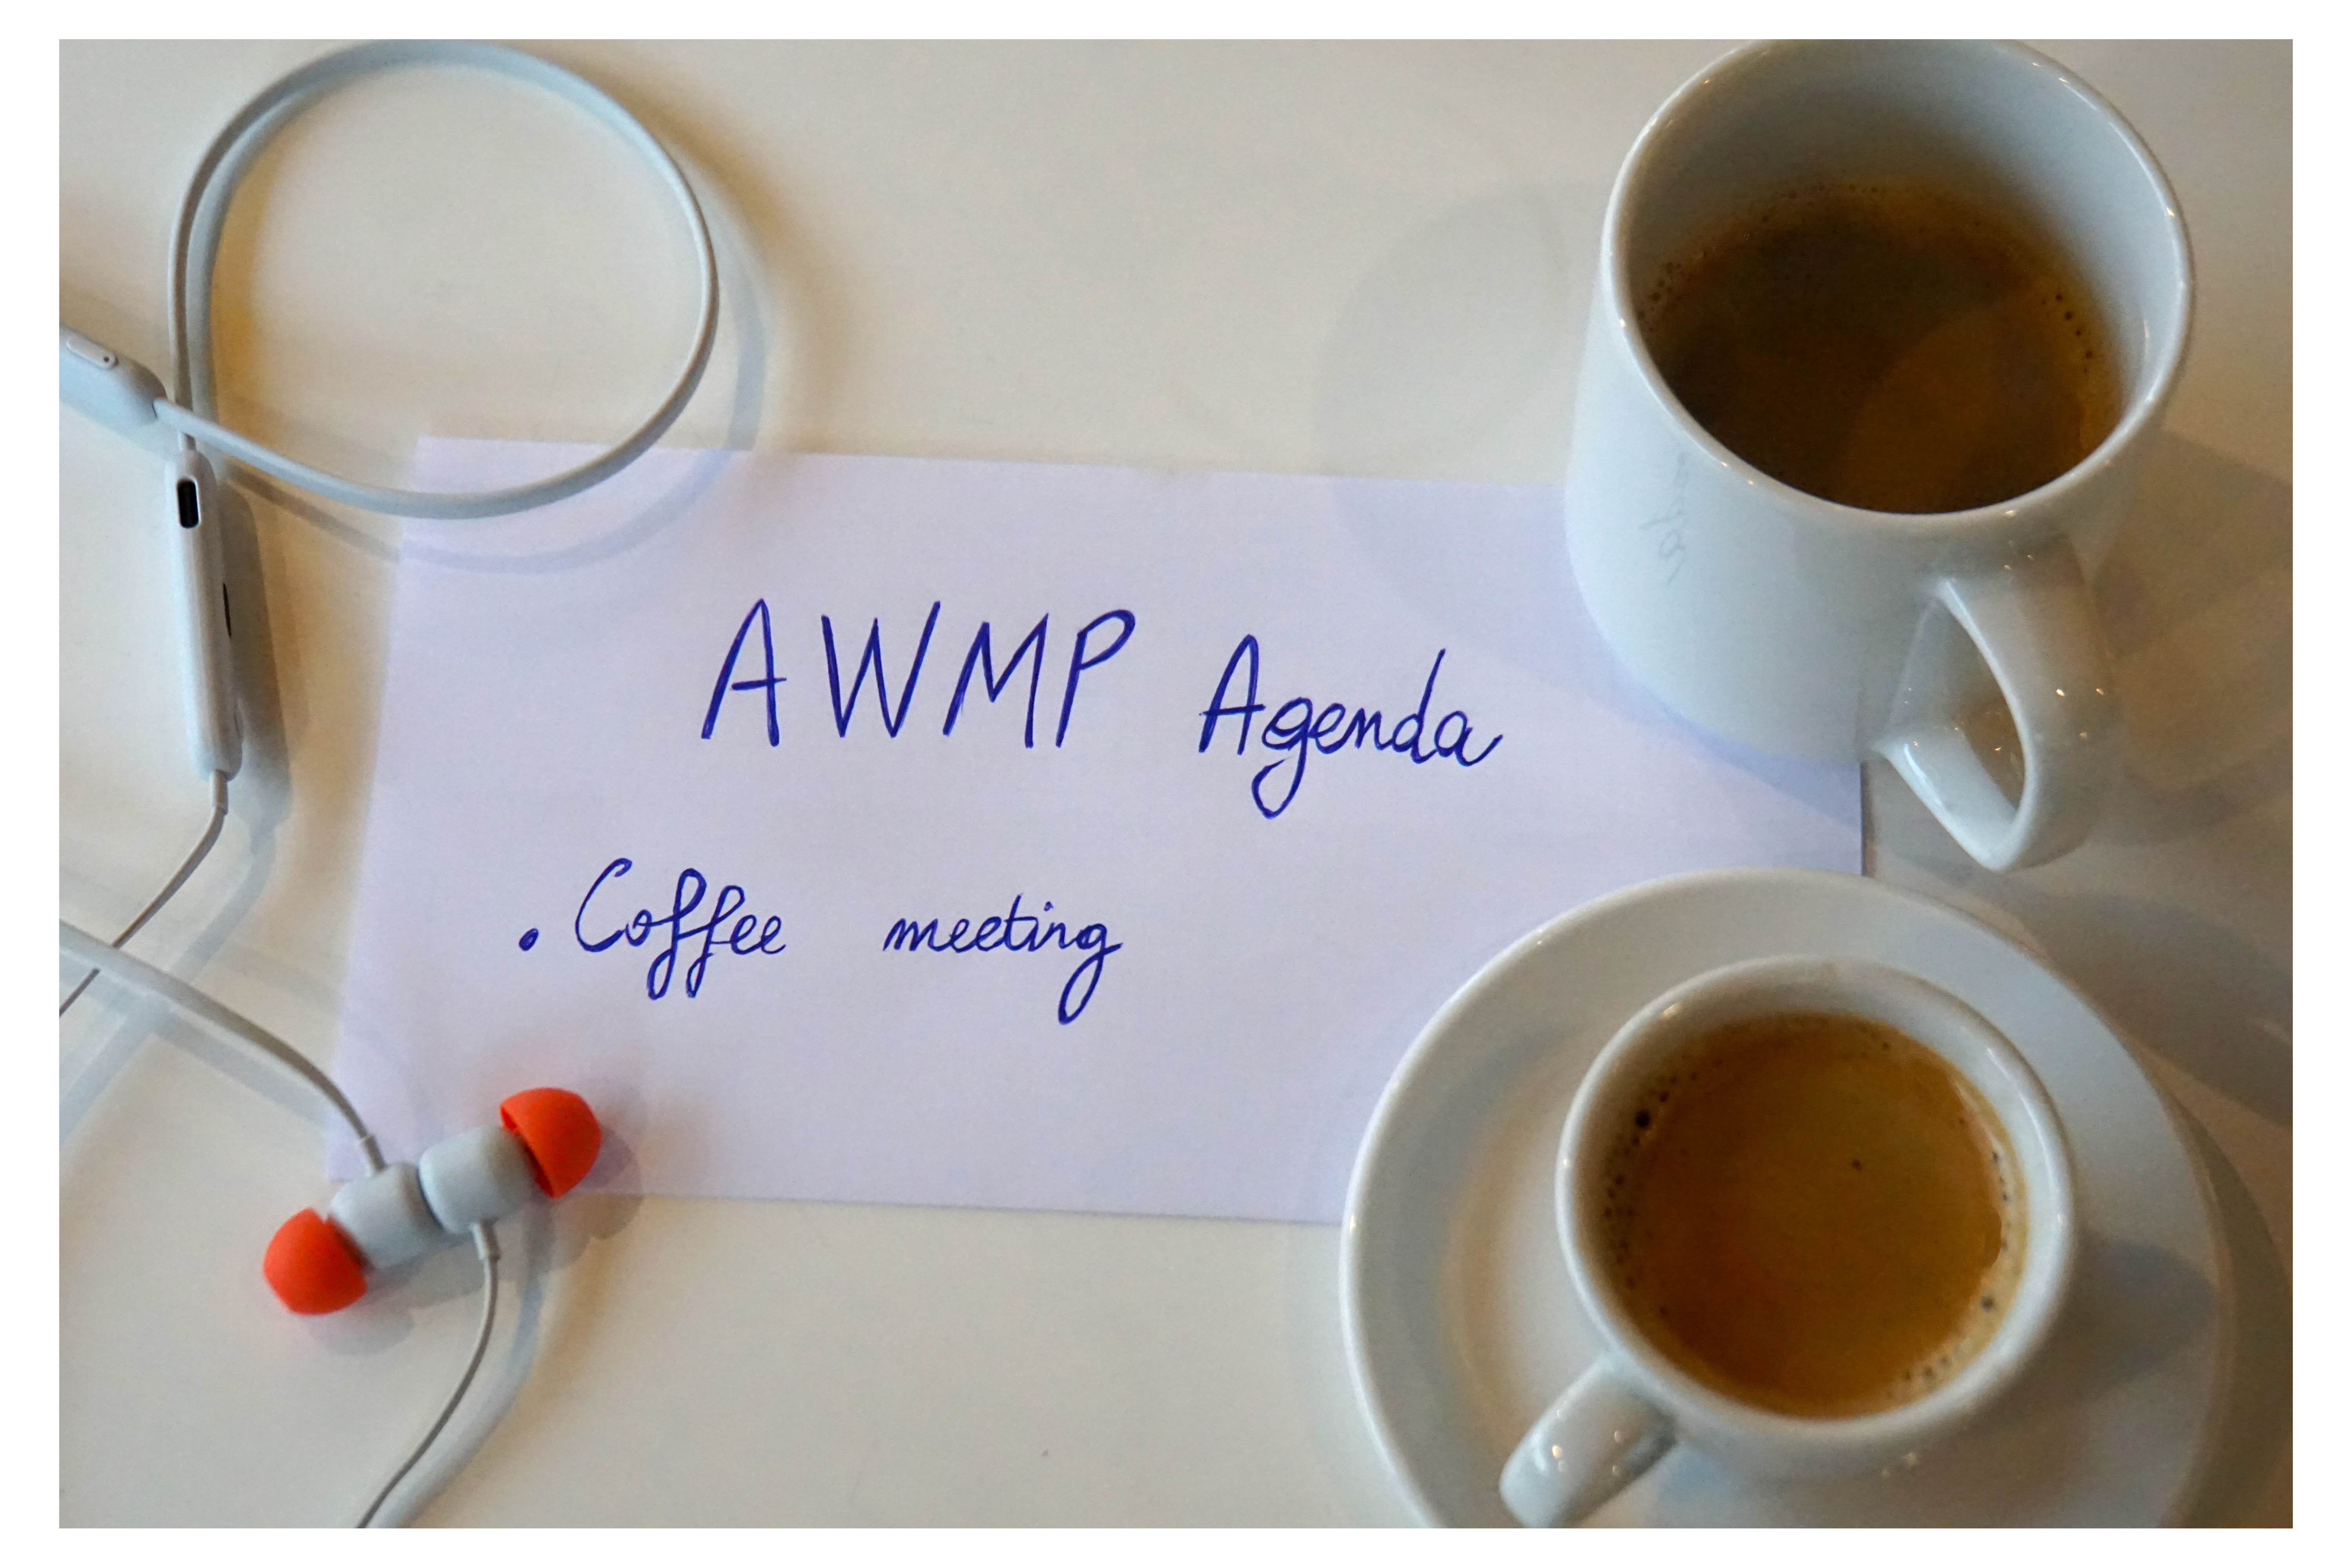 AWMP Agenda
. Coffee meeting